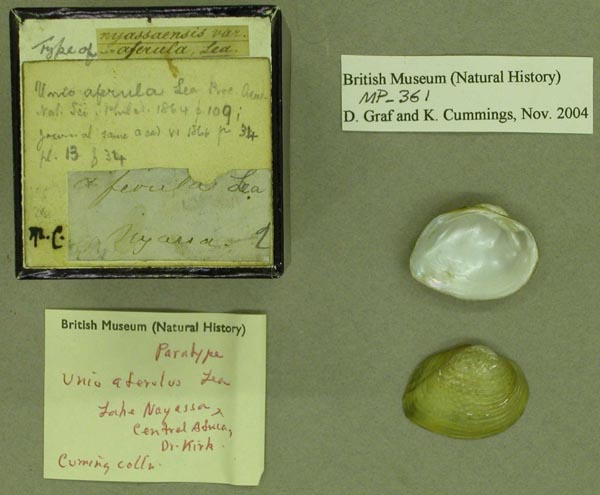 Type of
nyassaensis var.
aferula, Lea.
Unio aferula Lea Proc. Acad.
Nat. Sci. Philad. 1864 p. 109;
journal same acad VI 1866 p 34
pl. 13 f 34
aferulas Lea
Nyassa
M.C.
British Museum (Natural History)
MP-361
D. Graf and K. Cummings, Nov. 2004
British Museum (Natural History)
Paratype
Unio aferulus Lea
Lake Nayassa,
Central Africa,
Dr. Kirk.
Cuming colln.